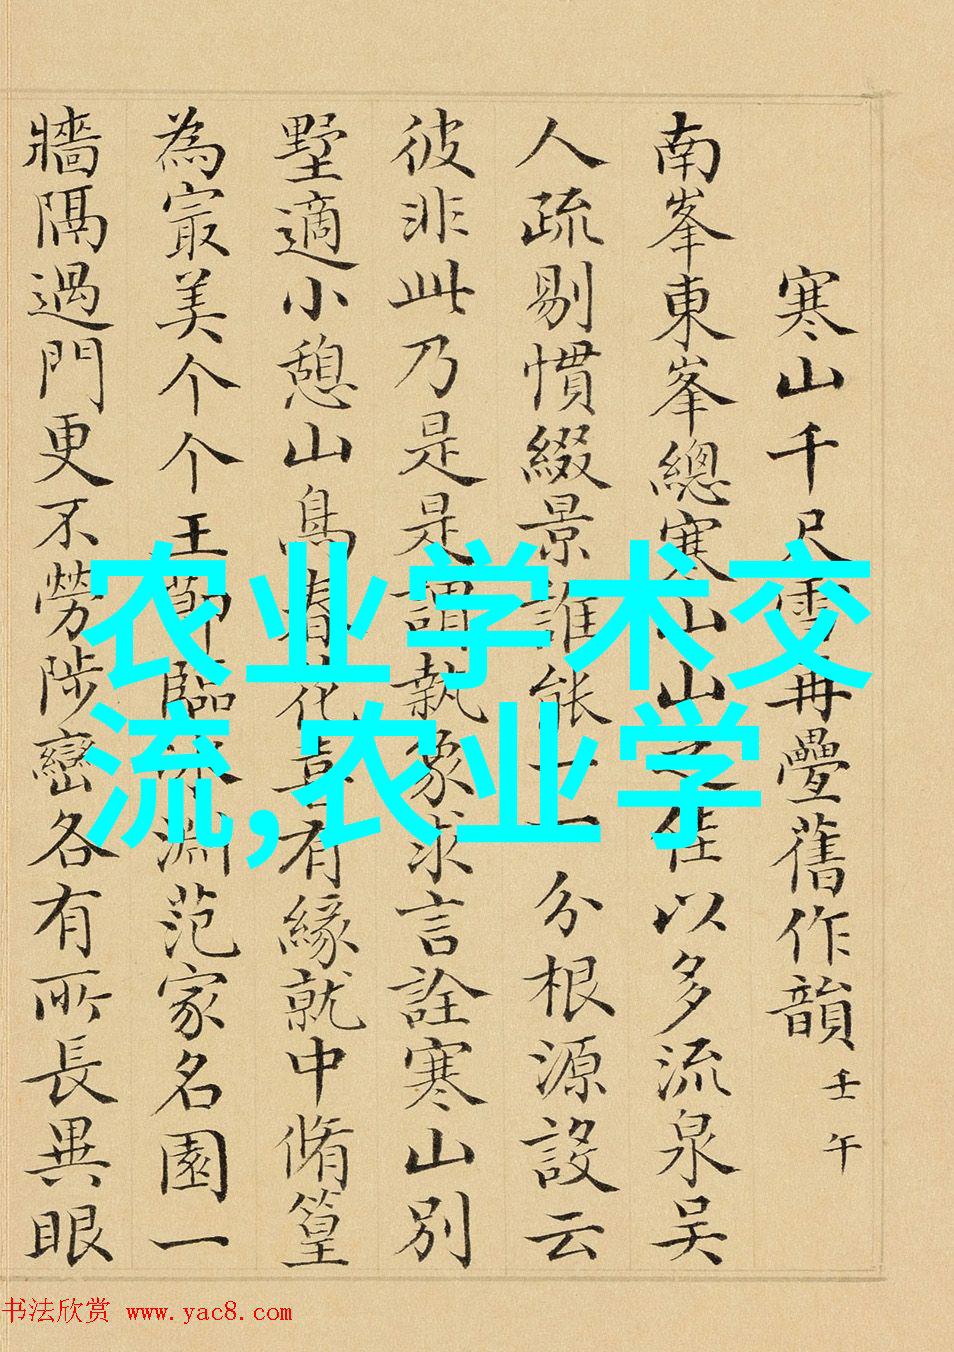 寒山千尺雪再疊舊作韻 壬午
南峯東峯總寒山山之佳以多流泉吴
人疏剔慣綴景誰能一一分根源設云
彼非此乃是是謂執象求言詮寒山別
墅適小憩山鳥春花喜有緣就中脩篁
為冣美个个玉節臨淵范家名園一
牆隔過門更不勞陟巒各有所長異眼
农业学术交
流,农业学
书法欣赏 www.yac8.com